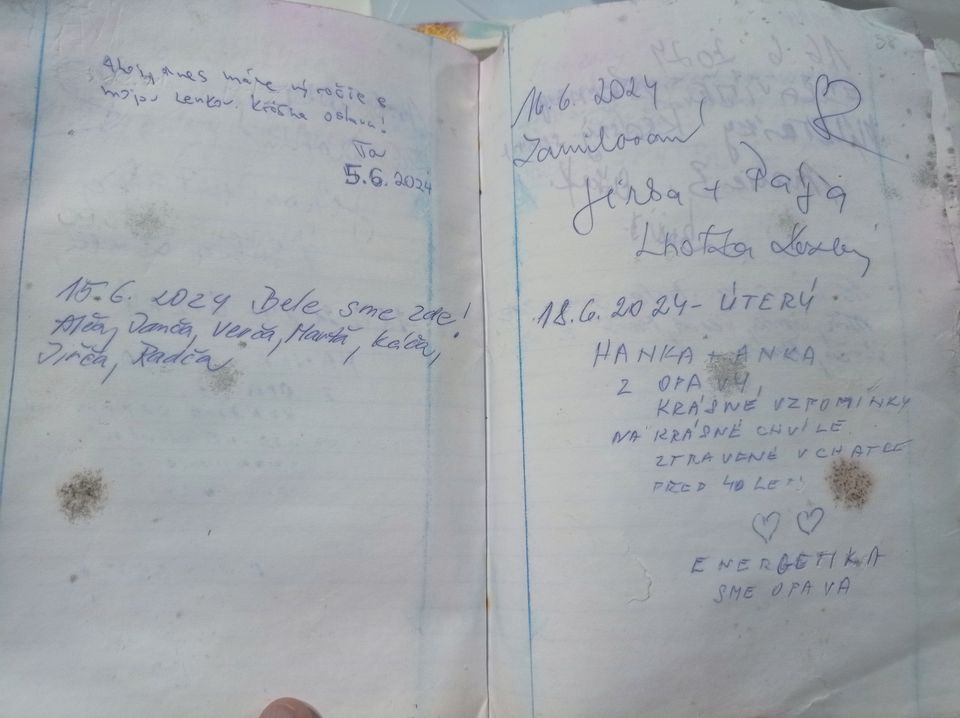 Ahoj, dnes máme výročie s
mojou Lenkou. Krásna oslava!
5.6.2024
15.6. 2024 Bele sme zde!
Alča, Danča, Verča, Marťa, Káča,
Jirča, Radča
16.6. 2024
Zamilovaní
Jirka + Pája
Lhotka
18.6.2024 - ÚTERÝ
HANKA + ANKA
Z OPAVY,
KRÁSNÉ VZPOMÍNKY
NA KRÁSNÉ CHVÍLE
ZTRAVENÉ V CHATCE
PŘED 40 LETY
ENERGETIKA
SME OPAVA